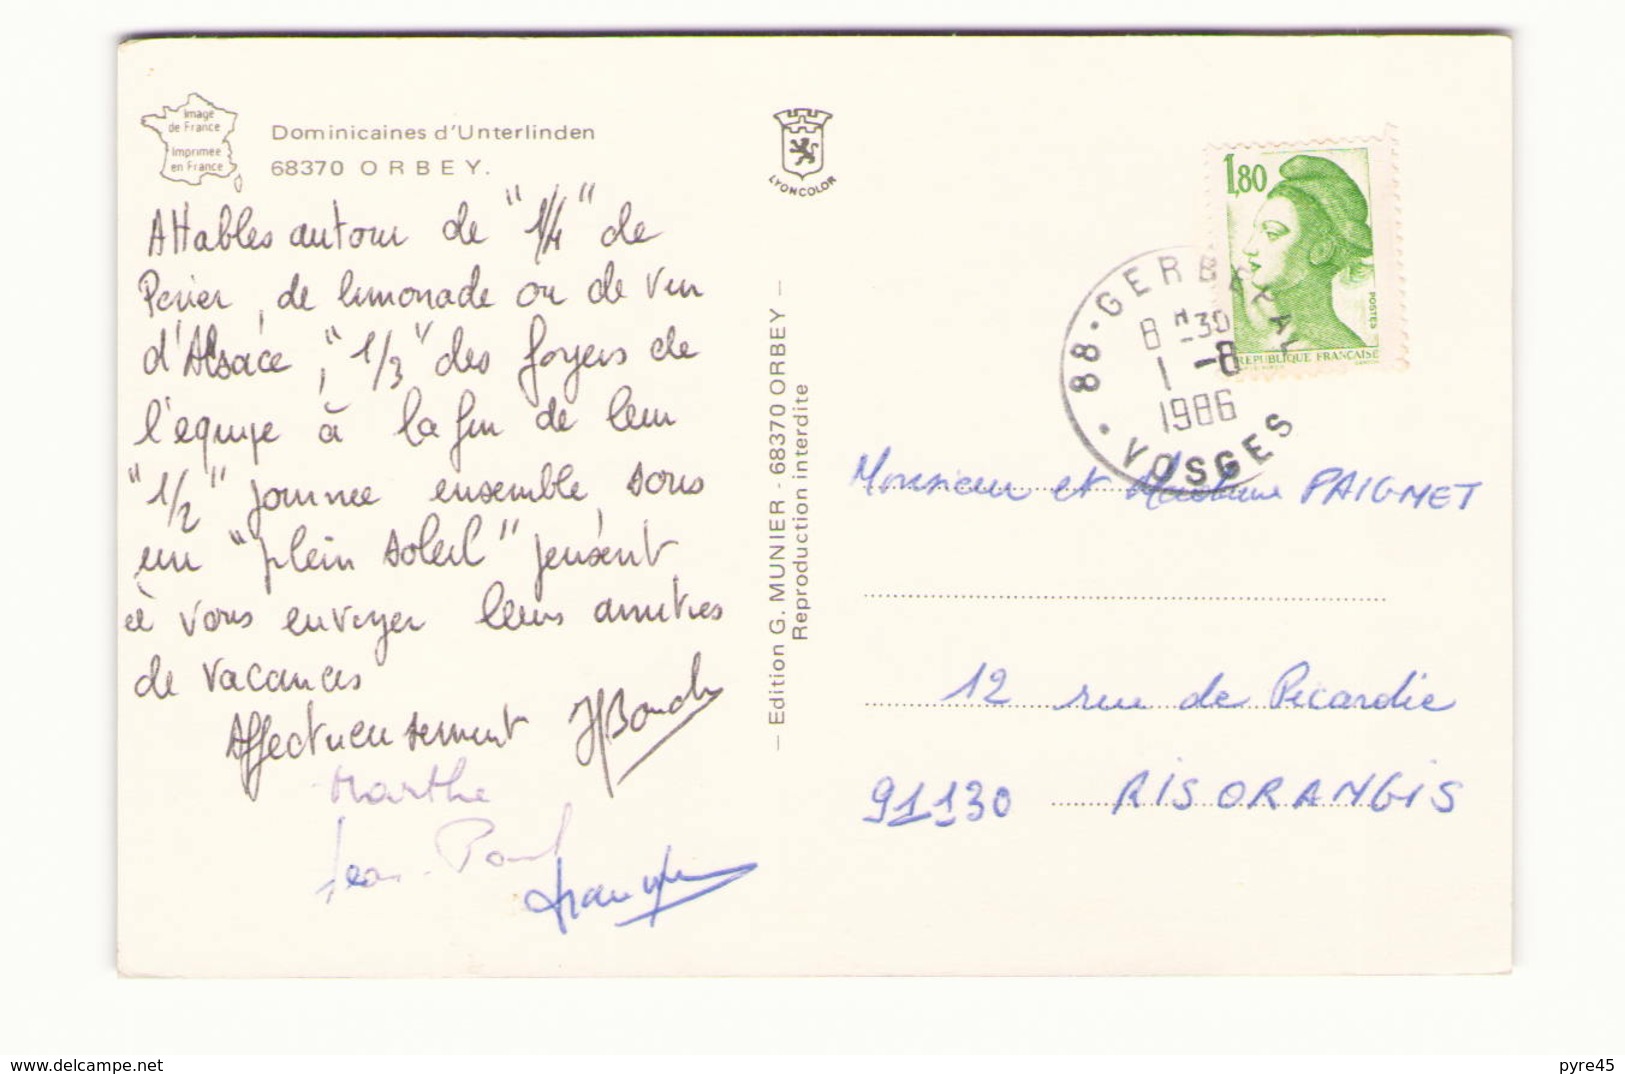 Image
de France
Imprimée
en France
Dominicaines d'Unterlinden
68370 ORBEY.
LYONCOLOR
Attablés autour de "1/4" de
Perier, de limonade ou de vin
d'Alsace, "1/3" des foyers de
l'équipe à la fin de leur
"1/2" journée ensemble, sous
un "plein soleil" pensent
à vous envoyer leurs amitiés
de vacances
Affectueusement
Marthe
Jean-Paul
— Edition G. MUNIER - 68370 ORBEY —
Reproduction interdite
1,80
POSTES
REPUBLIQUE FRANÇAISE
88 · GERBEPAL
8 H 30
1 -8
1986
VOSGES
Monsieur et Madame PAIGNET
12 rue de Picardie
91130 RIS ORANGIS
pyre45